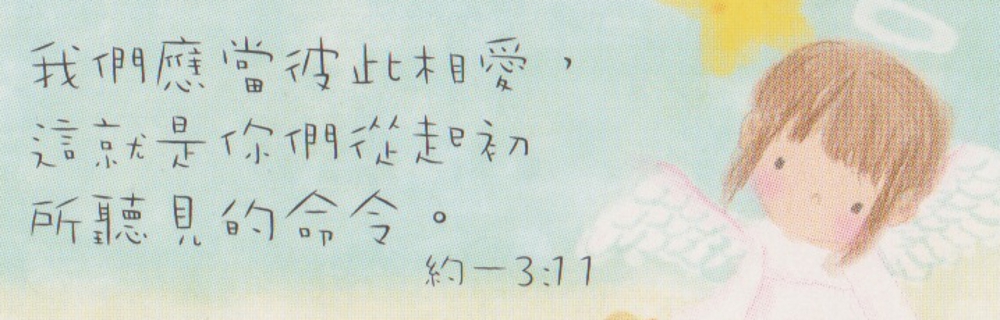 我們應當彼此相愛，
這就是你們從起初
所聽見的命令。
約一3:11